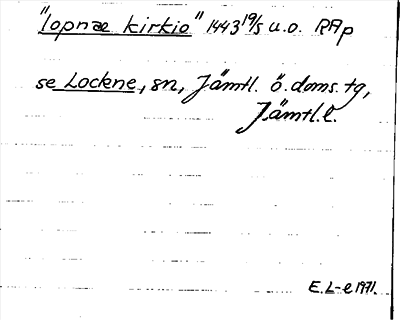 "lopnæ kirkio" 1443 19/5 u.o. RAp
se Lockne, sn, Jämtl. ö. doms. tg,
Jämtl. l.
E. L-e 1971.